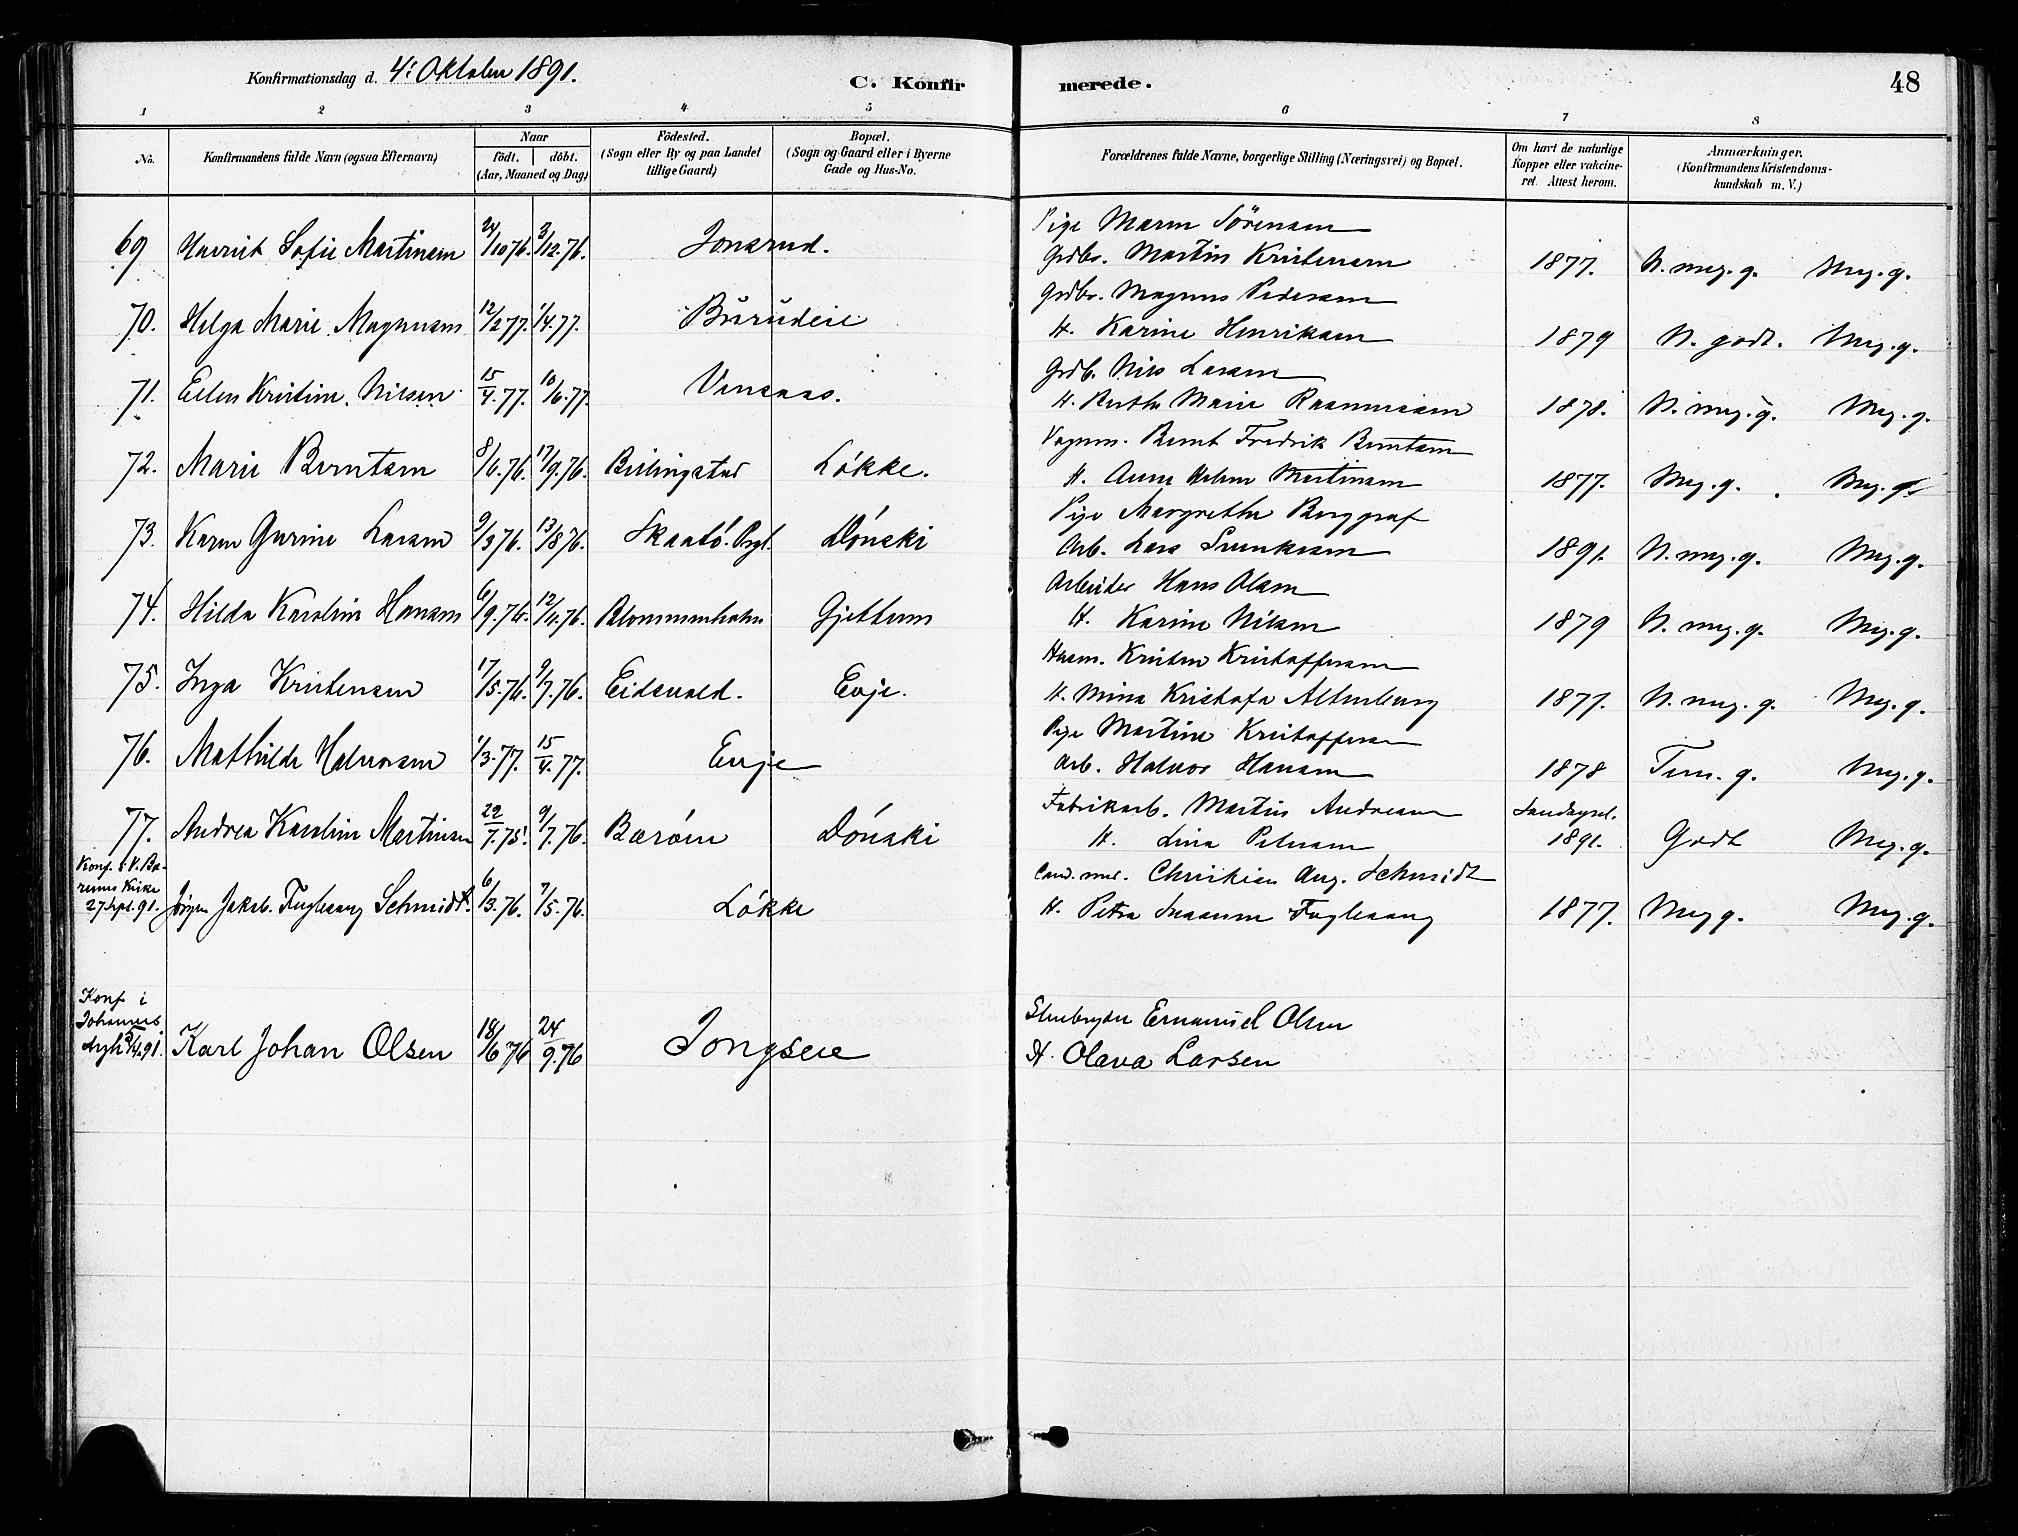 Konfirmationsdag d. 4: Oktober 1891.
C. Konfir
merede.
48
1 2 3 4 5 6 7 8
No.
Konfirmandens fulde Navn (ogsaa Efternavn)
Naar
födt. döbt.
(Aar, Maaned og Dag)
Födested.
(Sogn eller By og paa Landet
tillige Gaard)
Bopæl.
(Sogn og Gaard eller i Byerne
Gade og Hus-No.
Forældrenes fulde Navne, borgerlige Stilling (Næringsvei) og Bopæl.
Om havt de naturlige
Kopper eller vakcine-
ret. Attest herom.
Anmærkninger.
(Konfirmandens Kristendoms-
kundskab m. V.)
Pige Maren Sörensen
69 Harriet Sofie Martinsen 24/10 76. 3/12. 76. Jonsrud. Grdbr. Martin Kristensen 1877. N. meg. g. Meg. g.
Grdbr. Magnus Pedersen
70. Helga Marie Magnusen 12/2 77. 1/4. 77. Bürüdeie H. Karine Henriksen 1879 N. godt. Meg. g.
Grdb. Nils Larsen
71. Ellen Kristine Nilsen 15/4. 77. 10/6. 77. H. Marie Rasmussen 1878. N. meg. g. Meg. g.
Vognm. Bernt Fredrik Berntsen
72. Marie Berntsen 8/6. 76. 17/9. 76. Billingstad Løkke. H. Anne Helene Martinsen 1877. Meg. g. Meg. g.
Pige Margrethe Berggraf
73. Karen Gurine Larsen 9/3 76. 13/8 76. Skaatö. Prgl. Dönski Arb. Lars 1891. N. meg. g. Meg. g.
Arbeider Hans Olsen
74. Hilda Karoline Hansen 6/9. 76. 12/11. 76. Blommenholm Gjettum H. Karine Nilsen 1879 N. meg. g. Meg. g.
Husm. Kristen Kristoffersen
75. Inga Kristensen 17/5. 76. 9/7. 76. Eidsvold. Evje. H. Mina Kristofa Altenburg 1877. N. meg. g. Meg. g.
Pige Martine Kristoffersen
76. Mathilde Halvorsen 1/3. 77. 15/4. 77. Evje Arb. Halvor Hansen 1878 Tem. g. Meg. g.
Fabrikarb. Martin Andresen
77. Andrea Karoline Martinsen 22/7. 75. 9/7. 76. Bærøm Dónski H. Lina Petersen 1891. Godt Meg. g.
Konf. i V. Bæ-
rums Kirke
27 Sept. 91.
Cand. med. Christian Aug. Schmidt
Jörgen Jakob Fuglesang Schmidt. 6/3. 76. 7/5. 76. Løkke H. Petra Susanne Fuglesang 1877. Meg g. Meg. g.
Konf. i
Johannes
Stenbryder Emanuel Olsen
Karl Johan Olsen 18/6 76 24/9. 76 Jongseie H. Olava Larsen